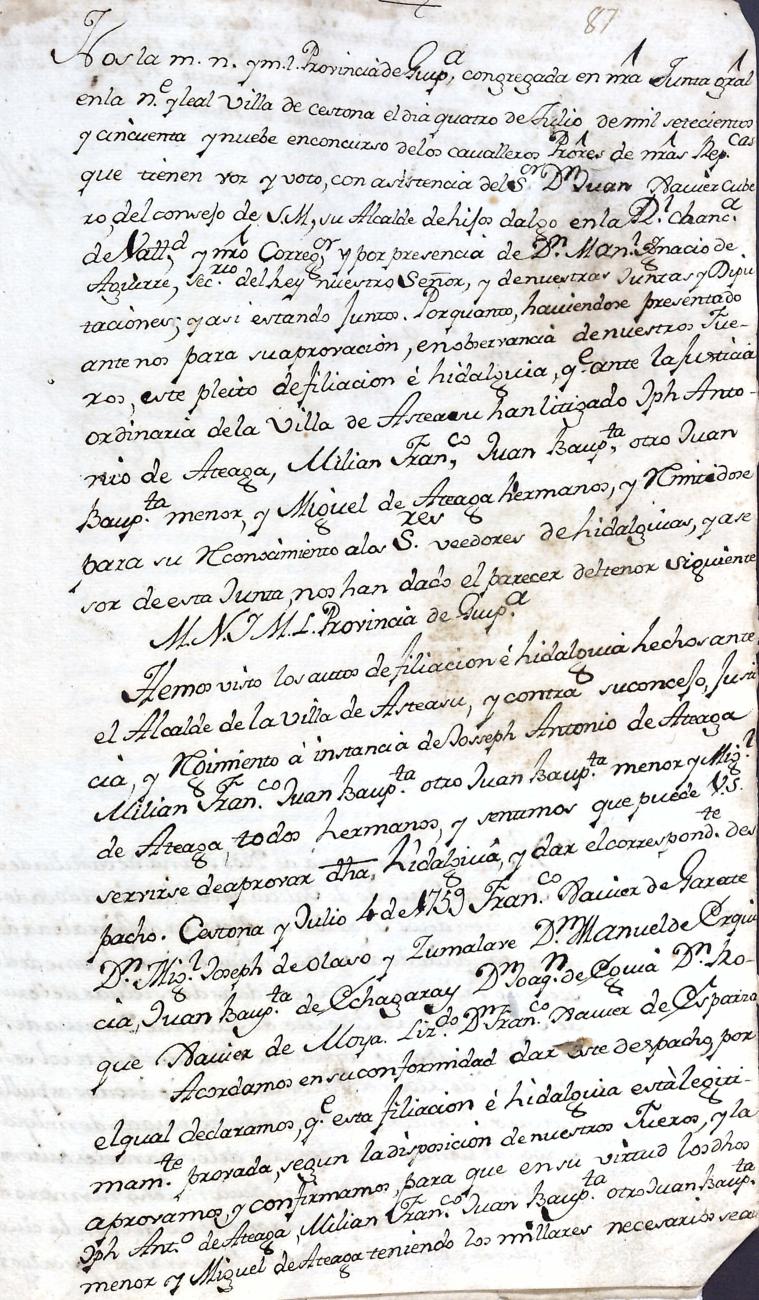 87
Nos la m. n. y m. l. Provincia de Guip.a, congregada en nrâ Junta grâl
en la n.e y leal Villa de cestona el dia quatro de Julio de mil setecientos
y cincuenta y nuebe en concurso de los cavalleros Prôres de nrâs Rep.cas
que tienen voz y voto, con asistencia del S.or D.n Juan Xavier Cube
ro, del consejo de S.M, su Alcalde de hijos dalgo en la R.l chanc.a
de Vall.d y nrô Correg.or, y por presencia de D.n Man.l Ignacio de
Aguirre, sec.rio del Rey nuestro Señor, y de nuestras Juntas y Dipu
taciones; y asi estando Juntos. Por quanto, haviendose presentado
ante nos para su aprovación, en observancia de nuestros Fue-
ros, este pleito de filiacion é hidalguia, q.e ante la Justicia
ordinaria de la Villa de Asteasu han litigado Jph Anto-
nio de Ateaga, Milian Fran.co, Juan Baup.ta, otro Juan
Baup.ta menor, y Miguel de Ateaga hermanos, y Remitidose
para su Reconocimiento a los S.res veedores de hidalguias, y ase
sor de esta Junta, nos han dado el parecer del tenor siguiente
M.N.I M.L. Provincia de Guip.a
Hemos visto los autos de filiacion é hidalguia hechos ante
el Alcalde de la villa de Asteasu, y contra su concejo, Justi
cia, y Regimiento à instancia de Josseph Antonio de Ateaga
Milian Fran.co Juan Baup.ta otro Juan Baup.ta menor y Mig.l
de Ateaga todos hermanos, y sentimos que puede V.S.
servirse de aprovar dha, hidalguia, y dar el correspond.te des
pacho. Cestona y Julio 4 de 1759 Fran.co Xavier de Garate
D.n Mig.l Joseph de Olaso y Zumalave D.n Manuel de Orqui
cia, Juan Baup.ta de Echagaray D.n Joaq.n de Eguia D.n Ro-
que Xavier de Moya. Liz.do D.n Fran.co Xavier de Esparza
Acordamos en su conformidad dar este despacho, por
el qual declaramos, q.e esta filiacion é hidalguia està legiti-
mam.te provada, segun la disposición de nuestros Fueros, y la
aprovamos, y confirmamos, para que en su virtud los dhos
Jph Ant.o de Ateaga, Milian Fran.co Juan Baup.ta otro Juan Baup.ta
menor y Miguel de Ateaga teniendo los millares necesarios sean